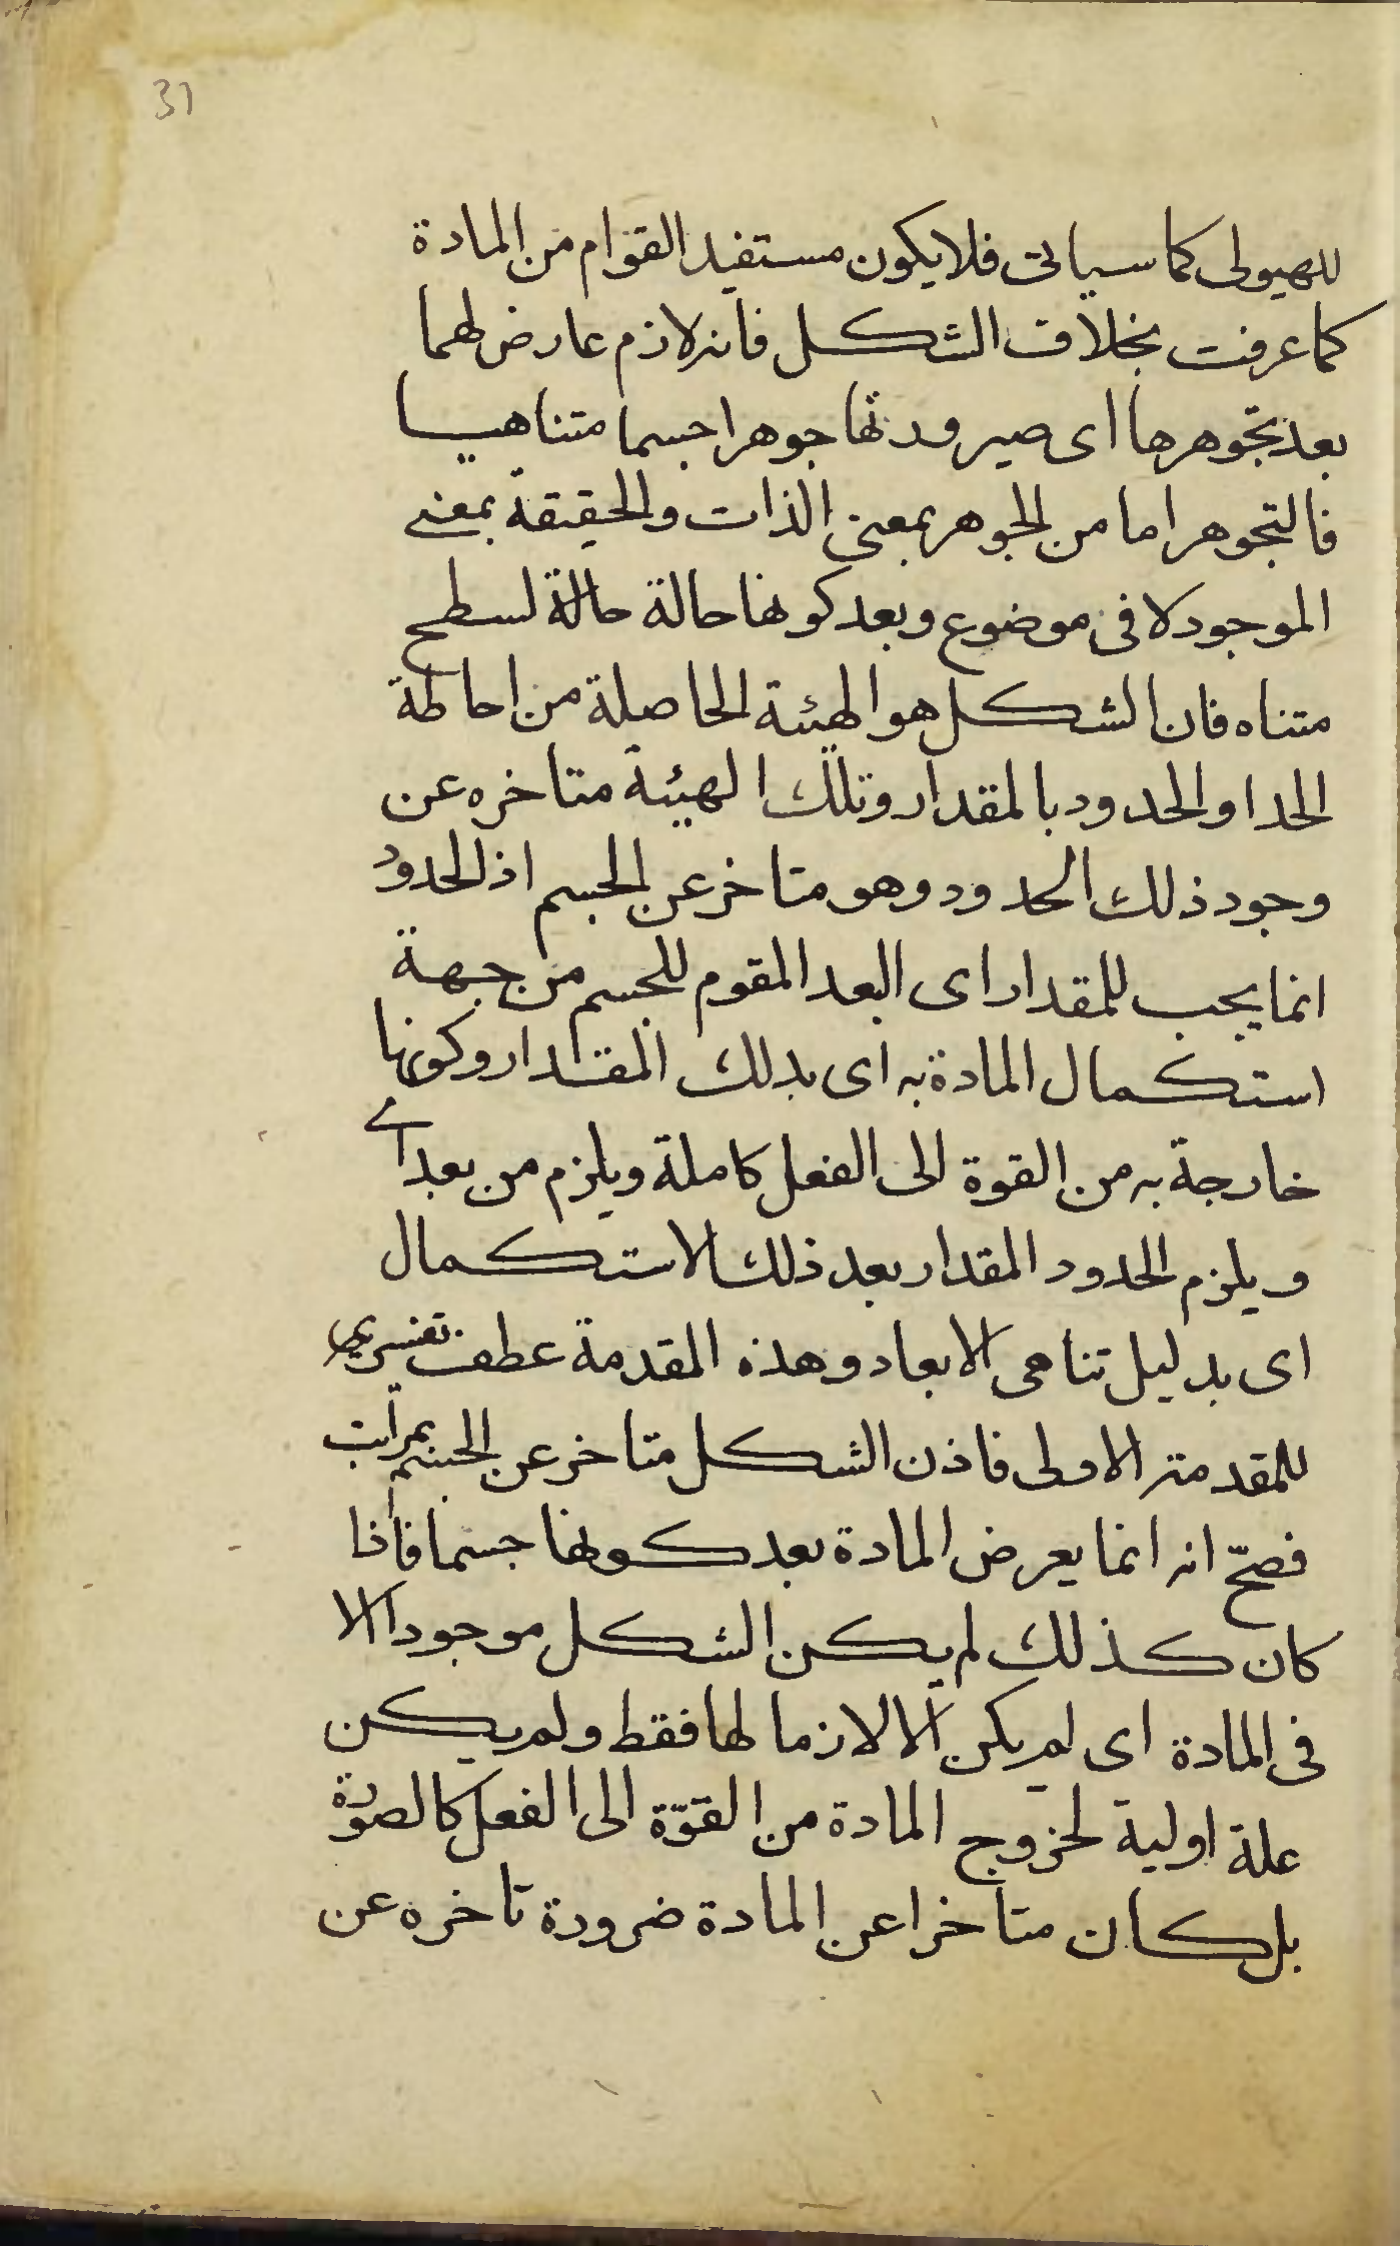 31
للهيولى كما سياتى فلا يكون مستفيد القوام من المادة
كما عرفت بخلاف الشكل فانه لازم عارض لهما
بعد تجوهرها اى صيرورتها جوهرا جسما متناهيا
فالتجوهر اما من الجوهر بمعنى الذات والحقيقة بمعنى
الموجود لا فى موضوع وبعد كونها حالة حالة لسطح
متناه فان الشكل هو الهيئة الحاصلة من احاطة
الحد او الحدود بالمقدار وتلك الهيئة متاخره عن
وجود ذلك الحدود وهو متاخر عن الجسم اذ الحدود
انما يجب للمقدار اى البعد المقوم للجسم من جهة
استكمال المادة به اى بذلك المقدار وكونها
خارجة به من القوة الى الفعل كاملة ويلزم من بعد اے
ويلزم الحدود المقدار بعد ذلك الاستكمال
اى بدليل تناهى الابعاد وهذه المقدمة عطف تفسيرى
للمقدمته الاولى فاذن الشكل متاخر عن الجسم بمراتب
فصحّ انه انما يعرض المادة بعد كونها جسما فاذا
كان كذلك لم يكن الشكل موجودا الا
فى المادة اى لم يكن الا لازما لها فقط ولم يكن
علة اولية لخروج المادة من القوّة الى الفعل كالصورة
بل كان متاخرا عن المادة ضرورة تاخره عن